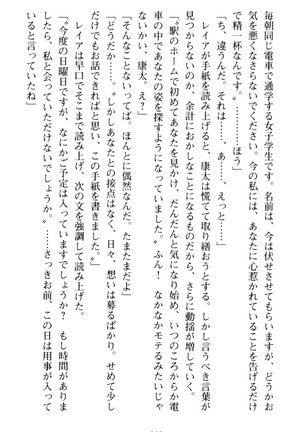 毎朝同じ電車で通学する女子学生です。名前は、今は伏せさせてもらいますが、どうかお
気を悪くなさらないでください。今の私には、あなたに心惹かれていることを告げるだけ
で精一杯なんです〟……ほう」
「ち、違うんだ、それは……、あ……、えっと……」
レイアが手紙を読み上げると、康太は慌てて取り繕おうとする。しかし言うべき言葉が
見つからないのか、余計におかしなことになるものだから、疑惑はいっそう深まった。
「〝駅のホームで初めてあなたを見かけ、だんだんと気になり始め、いつのころからか電
車の中であなたの姿を探すようになっていました〟ふん！　なかなかモテるみたいじゃ
ないかい、康太。え？」
「そんなことないってば。ほんとに偶然なんだ。たまたまだよ」
「どうだか……。〝しかしあなたとの接点はなく、日々、想いは募るばかり。せめて少し
だけでもお話できればと思い、この手紙を書きました〟だと」
レイアは早口でそこまで読み上げ、次の文を強調して読み上げた。
「〝今度の日曜日ですが、なにかご予定は入っていますでしょうか？　もし時間がありま
したら、私と会っていただけないでしょうか〟……さっきお前、この日は用事が入って
いると言っていたね」